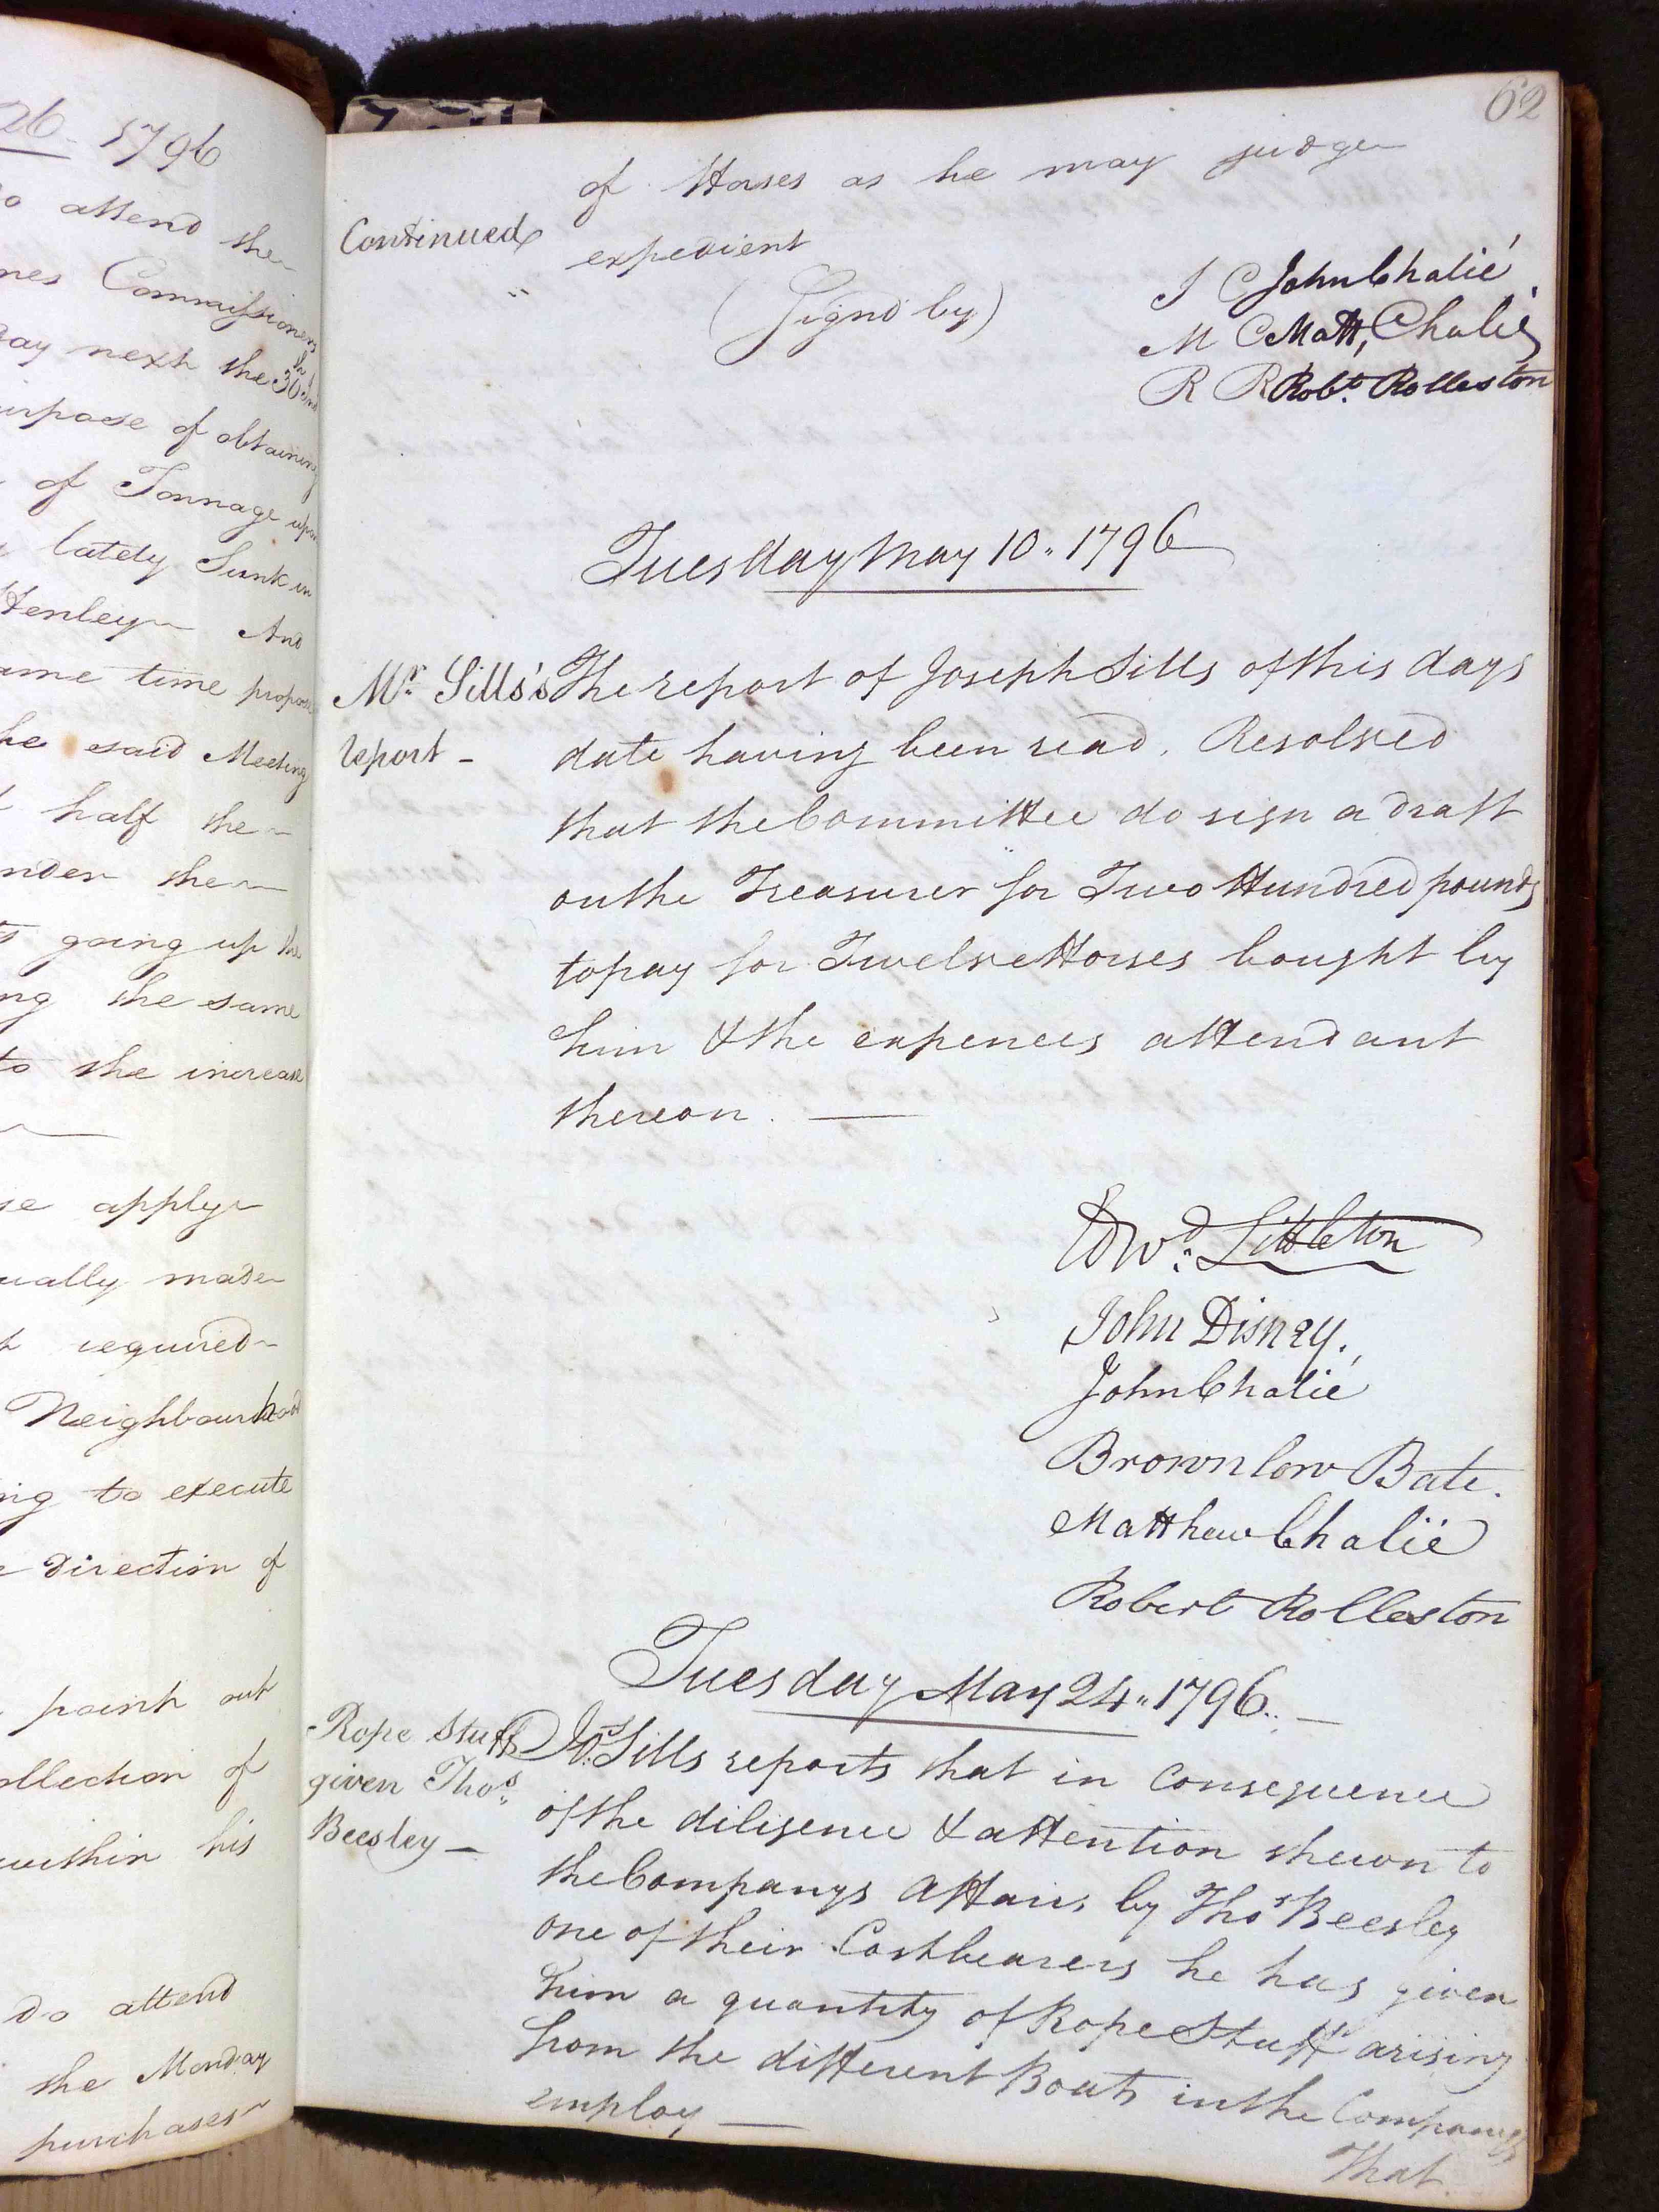 26. 1796
attend the
Commissioners
day next the 30th Inst
purpose of obtaining
of Tonnage upon
lately Sunk in
Henley And
same time propose
he said Meeting
half the
under the
going up the
the same
to the increase
apply
ually made
required
Neighbourhood
ing to execute
Direction of
point out
ollection of
within his
do attend
the Monday
purchases
62
of Horses as he may judge
Continued
expedient
(Signd by)
J C John Chalié
M C Matt, Chalié
R R Robt. Rolleston
Tuesday May 10. 1796
Mr. Sills's The report of Joseph Sills of this days
report - date having been read. Resolved
that the Committee do sign a draft
on the Treasurer for Two Hundred pounds
to pay for Twelve Horses bought by
him & the expences attendant
thereon.
Edwd. Littleton
John Disney.
John Chalié
Brownlow Bate.
Matthew Chalié
Robert Rolleston
Tuesday May 24. 1796.
Rope Stuff Jos. Sills reports that in Consequence
given Thos. of the diligence & attention shewn to
Beesley - the Companys Affairs by Thos Beesley
one of their Costbearers he has given
him a quantity of Rope Stuff arising
from the different Boats in the Companys
employ
That